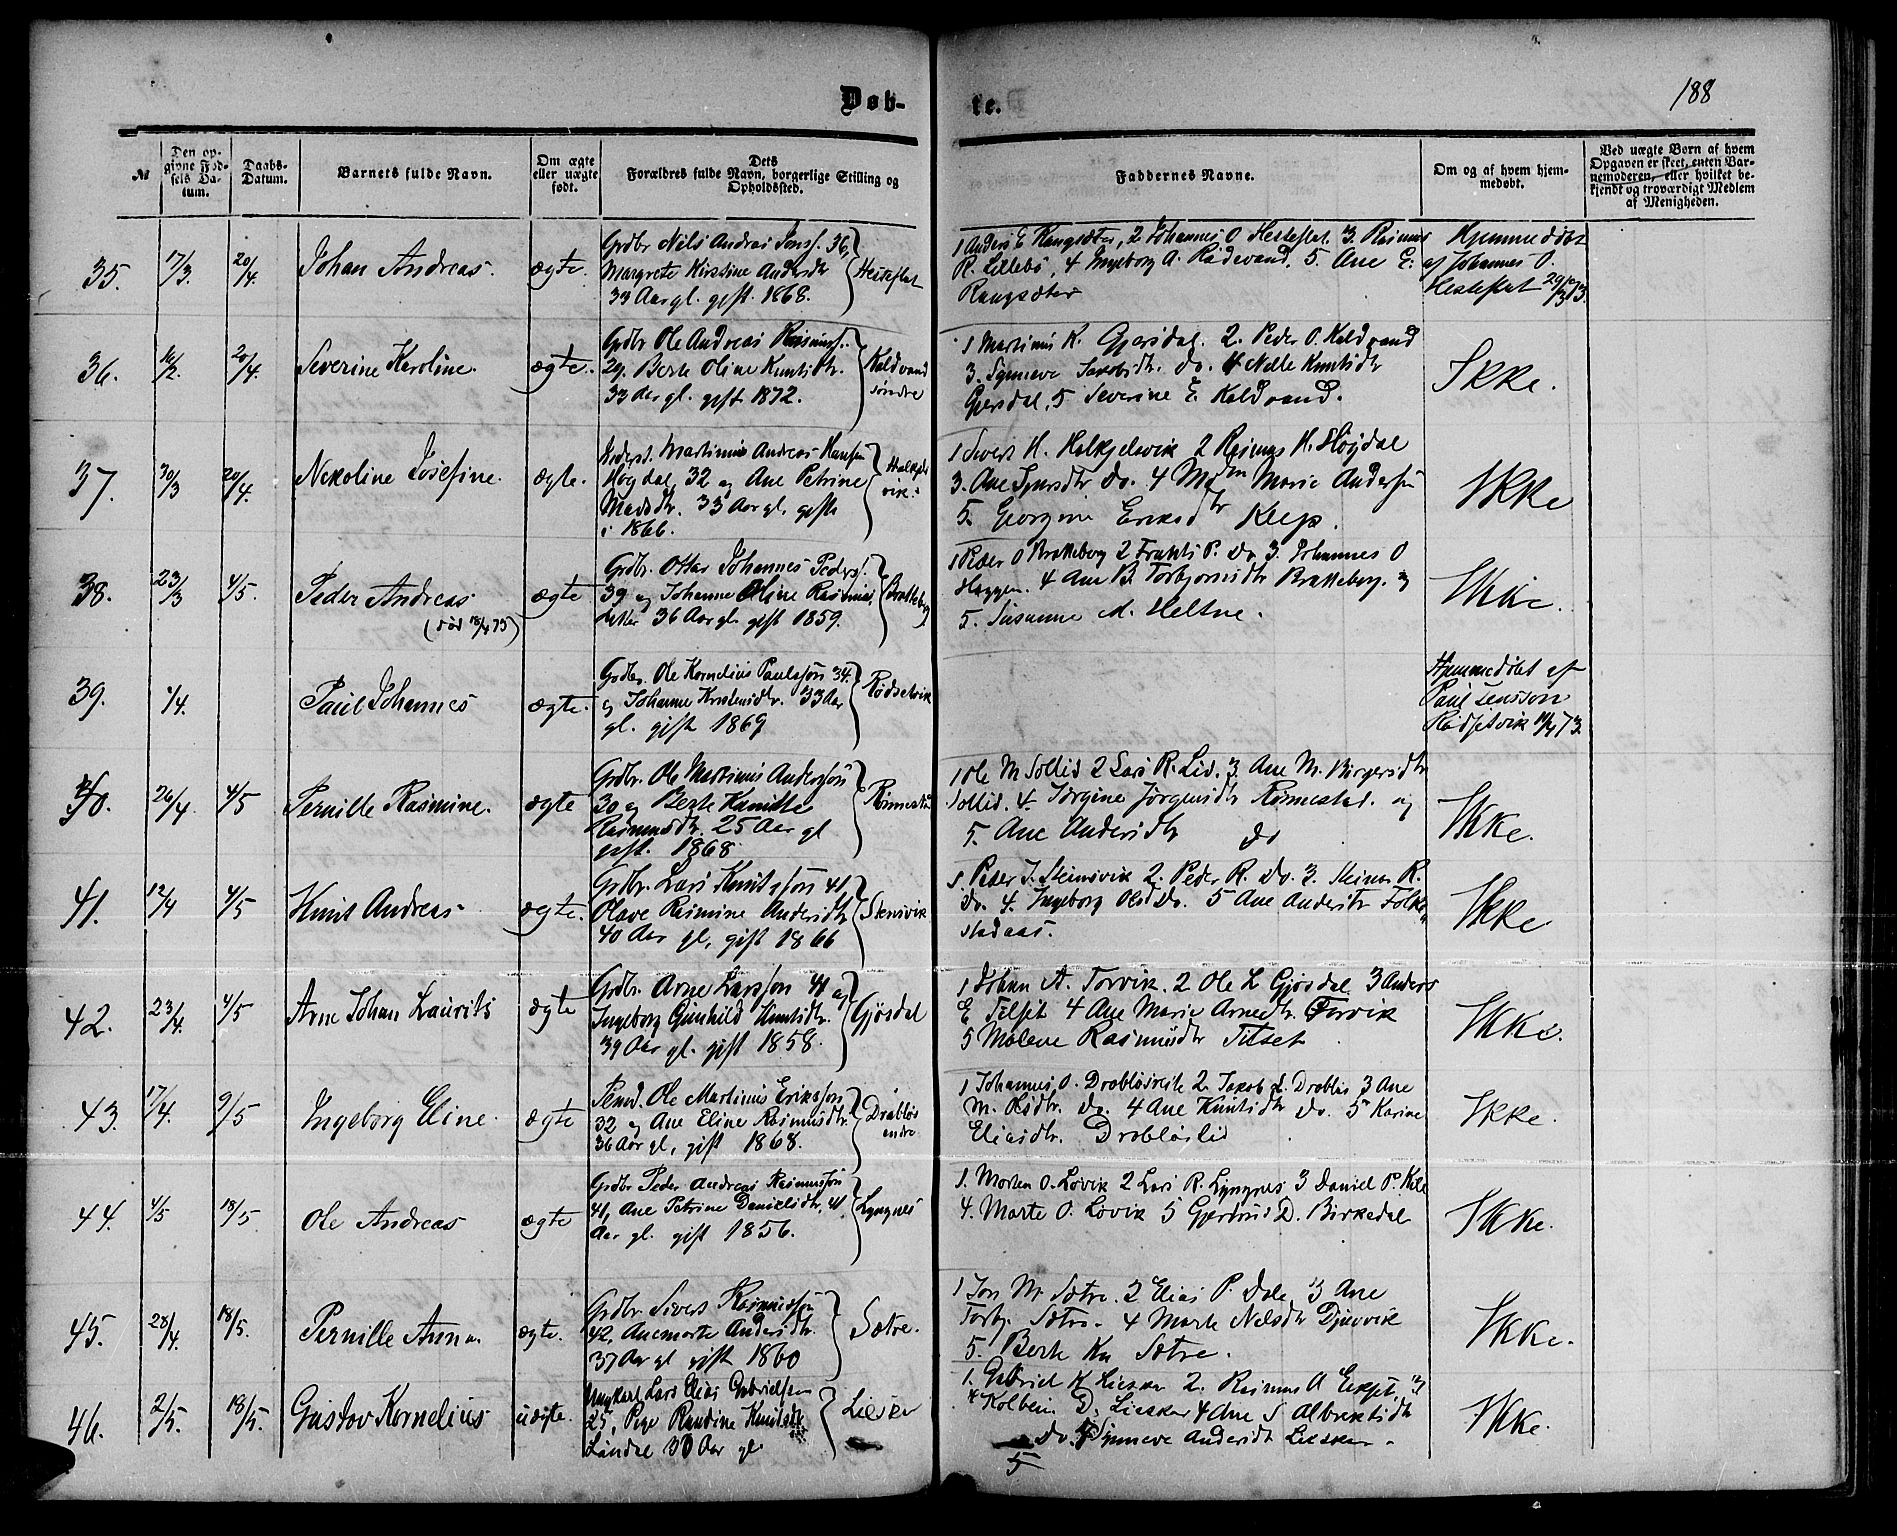 188
Døb-
te.
№
Den op-
givne Fød-
sels Da-
tum.
Daabs-
Datum.
Barnets fulde Navn.
Om ægte
eller uægte
født.
Dets
Forældres fulde Navn, borgerlige Stilling og
Opholdssted.
Faddernes Navne.
Om og af hvem hjem-
medøbt.
Ved uægte Børn af hvem
Opgaven er skeet, enten Bar-
nemoderen, eller hvilket be-
kjendt og troværdigt Medlem
af Menigheden.
35. 17/3. 20/4. Johan Andreas. ægte.
Grdbr Nils Andreas Jonss. 36,
Margrete Kirstine Andersdtr
33 Aar gl. gift 1868.
Hesteflat
1 Anders E Rangsæter, 2 Johannes O. Hesteflat. 3. Rasmus
R. Lillebø, 4 Ingeborg A. Rødevand, 5 Ane E.
Rangsæter
Hjemmedøbt
af Johannes O.
Hesteflat 29/3 73.
36. 16/2. 20/4. Severine Karoline. ægte.
Grdbr Ole Andreas Rasmuss.
29. Berte Oline Knutsdtr.
33 Aar gl. gift 1872.
Koldvand
søndre
1 Martinus K. Gjersdal. 2. Peder O. Koldvand
3. Synneve Jakobsdtr. do. 4 Nelle Knutsdtr
Gjersdal, 5 Severine E. Koldvand.
Ikke.
37. 30/3 20/4. Nekoline Josefine. ægte.
Martinus Andreas Hansen
Høgdal, 32 og Ane Petrine
Madsdtr. 33 Aar gl, gifte
i 1866.
1 Sivert H. Halkjelsvik 2 Rasmus H. Høydal
3. Ane do. 4 Marie Andersen
5. Georgine Eriksdtr
Ikke
38. 23/3 4/5. Peder Andreas ægte
(død 18/4 75)
Grdbr. Ottar Johannes Peders.
39 og Johanne Oline Rasmus-
datter 36 Aar gl. gift 1859.
Bratteberg
1 Peder O Bratteberg 2 Frants P. do 3. Johannes O
4. Ane B. Torbjørnsdtr Bratteberg. og
5. Susanne M. Heltne.
Ikke.
39. 1/4. Paul Johannes ægte.
Grdbr. Ole Kornelius Paulsson 34.
og Johanne Kristensdtr. 33 Aar
gl. gift 1869
Rødsetvik
Hjemmedøbt af
Paul Jensson
Rødsetvik 73.
40. 26/4. 4/5 Pernille Rasmine. ægte
Grdbr. Ole Martinus Andersson
30 og Berte Knutte
Rasmusdtr. 25 Aar gl
gift. 1868.
1 Ole M Sollid 2 Lars R. Lid. 3. Ane M. Birgersdtr
Sollid. 4. Jørgine Jørgensdtr Rønnestad. og
5. Ane Andersdtr do
Ikke.
41. 12/4 4/5 Knut Andreas ægte.
Grdbr. Lars Knutsson 41,
Olave Rasmine Andersdtr
40 Aar gl, gift 1866
Stensvik
1. Peder J. Steinsvik 2. Peder R. do. 3. Steinar R.
do. 4. Ingeborg Olsd do. 5 Ane Andersdtr Folke-
stadaas.
Ikke
42. 23/4. 4/5 Arne Johan Laurits ægte
Grdbr. Arne Larsson 41 og
Ingeborg Gunhild Knutsdtr.
39 Aar gl. gift 1858.
Gjøsdal
1 Johan A. Torvik. 2 Ole L Gjøsdal. 3 Anders
E Tilset 4 Ane Marie Arnedtr Torvik
5 Malene Rasmusdtr Tilset
Ikke.
43. 17/4. 9/5 Ingeborg Eline. ægte
Ole Martinus Eriksson
32 og Ane Eline Rasmusdtr.
36 Aar gl, gift 1868.
Drabløs
indre
1 Johannes O. Drabløsvik 2. Jakob L. Drabløs 3 Ane
M. do. 4 Ane Knutsdtr do. 5 Karine
Eliasdtr. Drabløslid
Ikke.
44. 4/5 18/5. Ole Andreas ægte
Grdbr Peder Andreas Rasmusson
41, Ane Petrine Danielsdtr, 41
Aar gl. gift 1856.
Lyngnes
1. Morten O. Løvik 2 Lars R. Lyngnes 3 Daniel P.
4. Marte O. Løvik 5 Gjertrud D. Birkedal
Ikke.
45. 28/4. 18/5. Pernille Anna. ægte.
Grdbr. Sivert Rasmusson
42, Anemarte Andersdtr.
37 Aar gl gift 1860
Sætre.
1 Jon M. Sætre. 2 Elias P. Dale 3 Ane
Torbj. Sætre. 4 Marte Nelsdtr Djuvvik
5. Berte Kn Sætre.
Ikke.
46. 2/5. 18/5. Gustav Kornelius uægte.
Ungkarl Lars Elias Gabrielsen
25, Pige Randine Knutsdtr
Lindal 30 Aar gl.
Liesker
1. Gabriel K Liesker 2. Rasmus A Ekset, 3
Kolben D. Liesker 4 Ane S Albrektsdtr
do. Synneve Andersdt Liesker
5
Ikke.